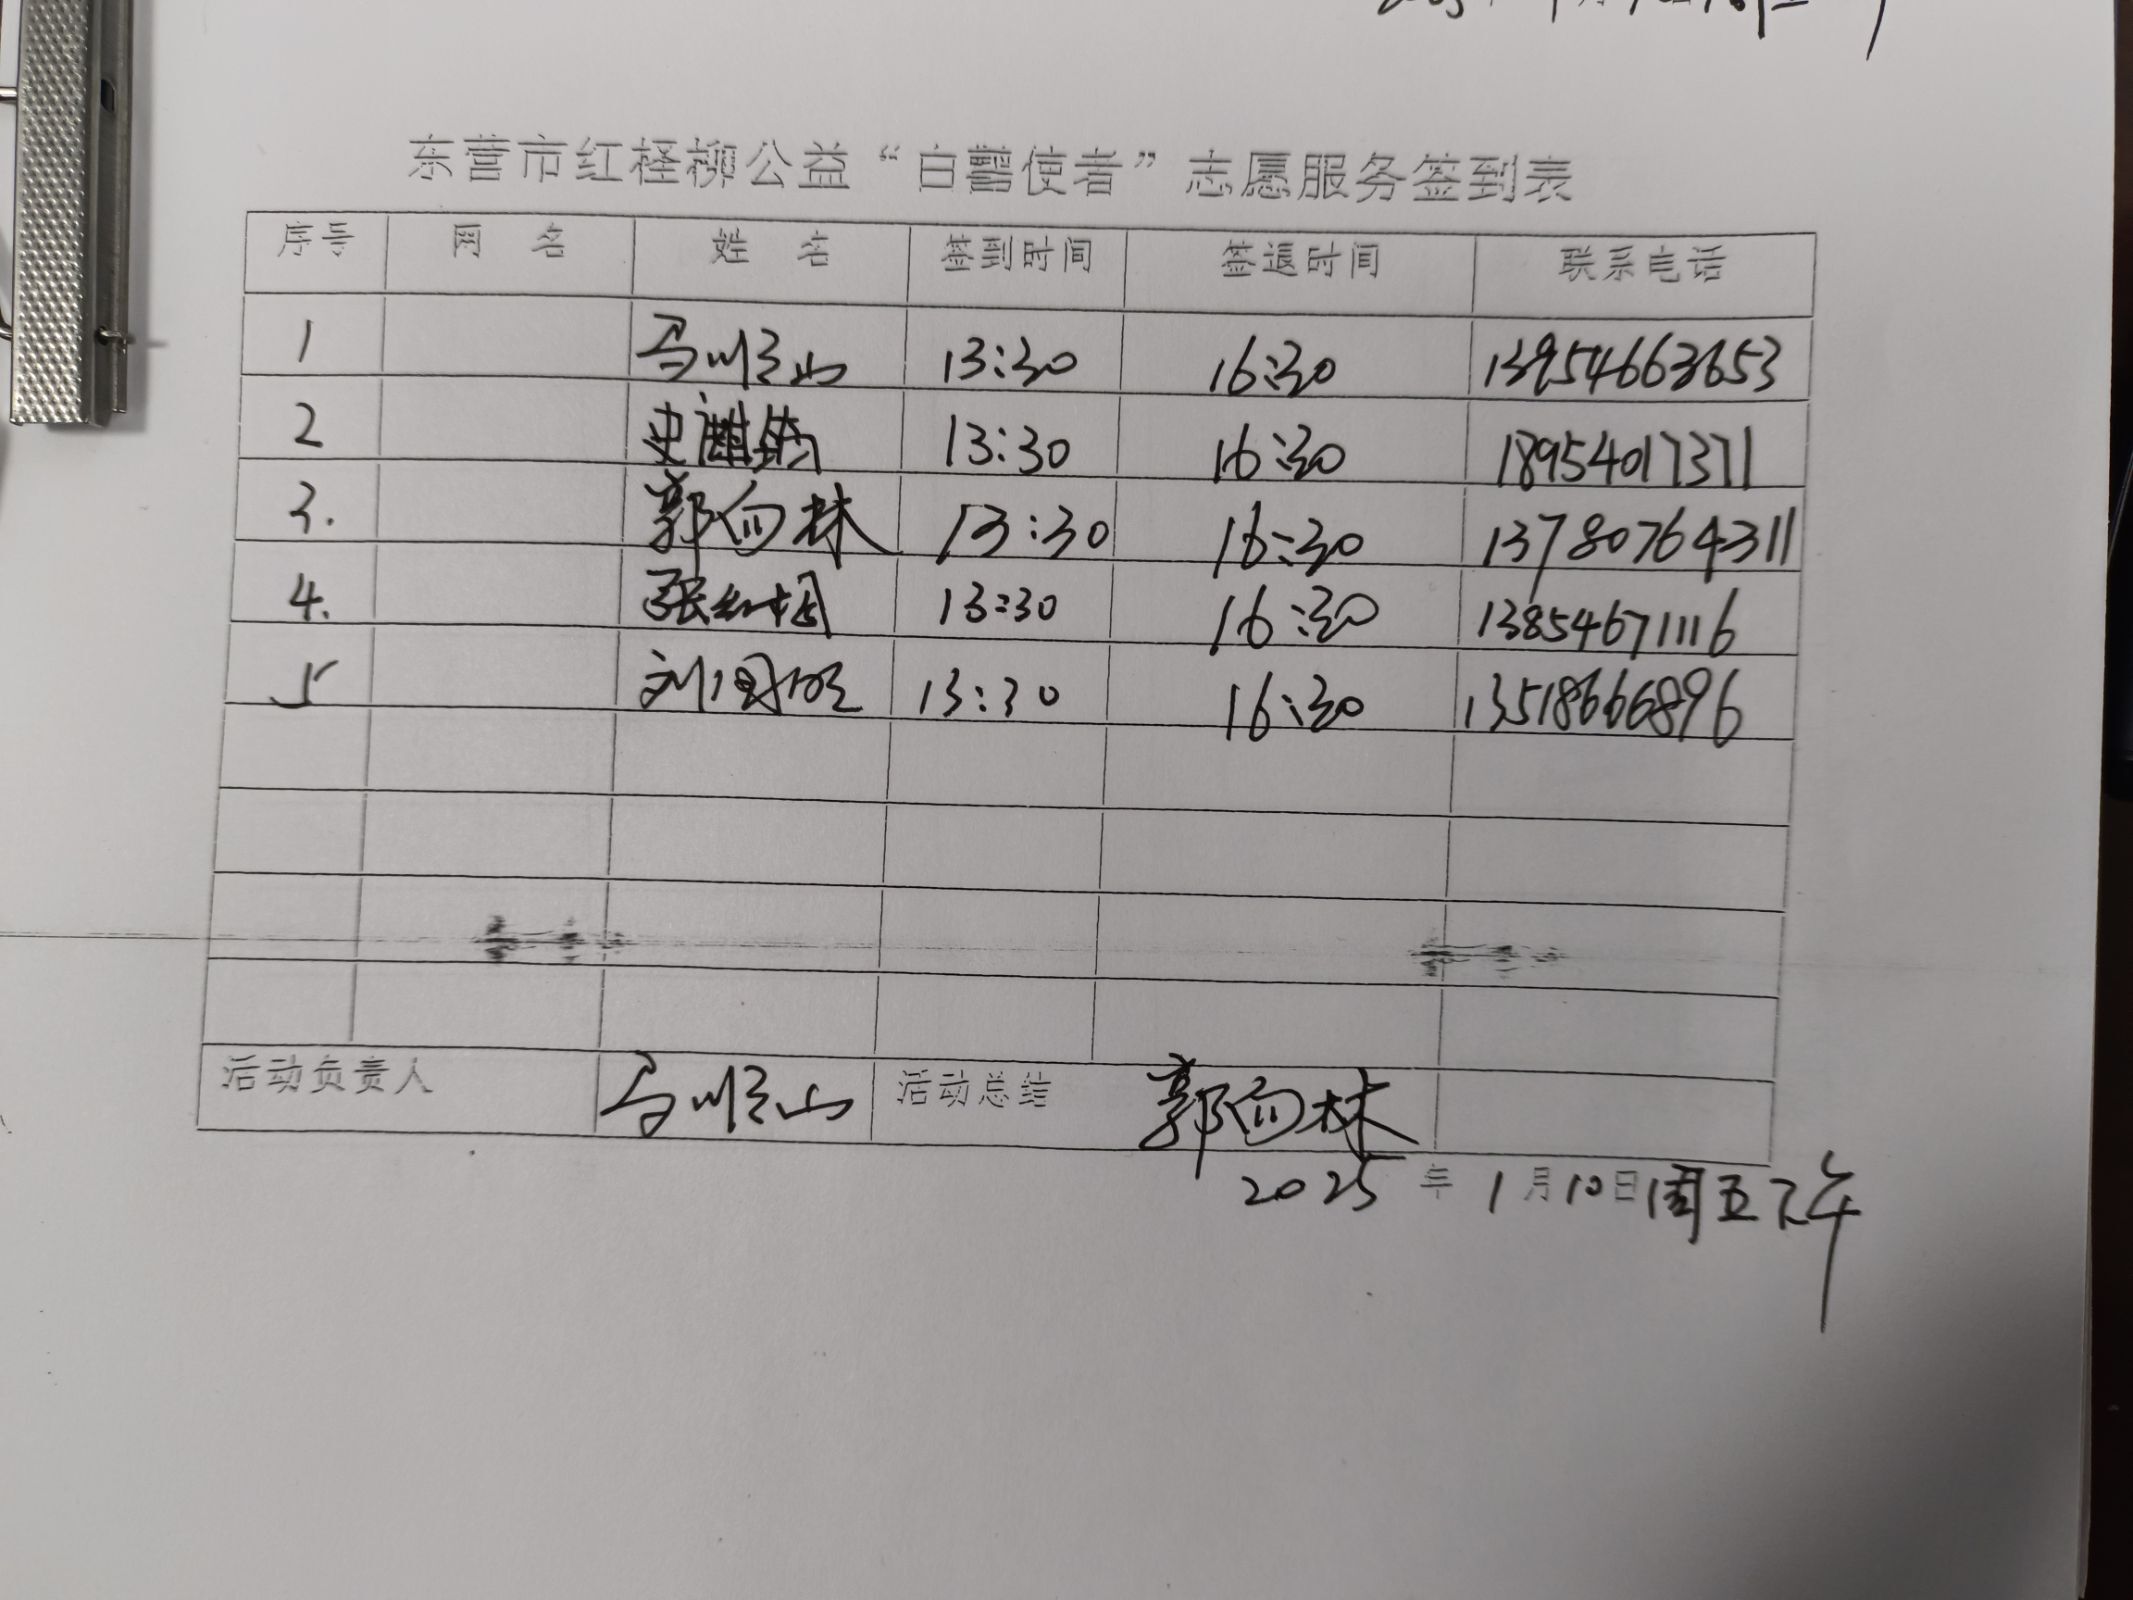 东营市红柽柳公益“白鹭使者”志愿服务签到表
序号 网 名 姓 名 签到时间 签退时间 联系电话
1 马顺山 13:30 16:30 13954663653
2 史 13:30 16:30 18954017371
3. 郭向林 13:30 16:30 13780764311
4. 张红娟 13:30 16:30 13854671116
5 刘国 13:30 16:30 13518666896
活动负责人 马顺山 活动总结 郭向林
2025 年 1 月 10 日 周五下午